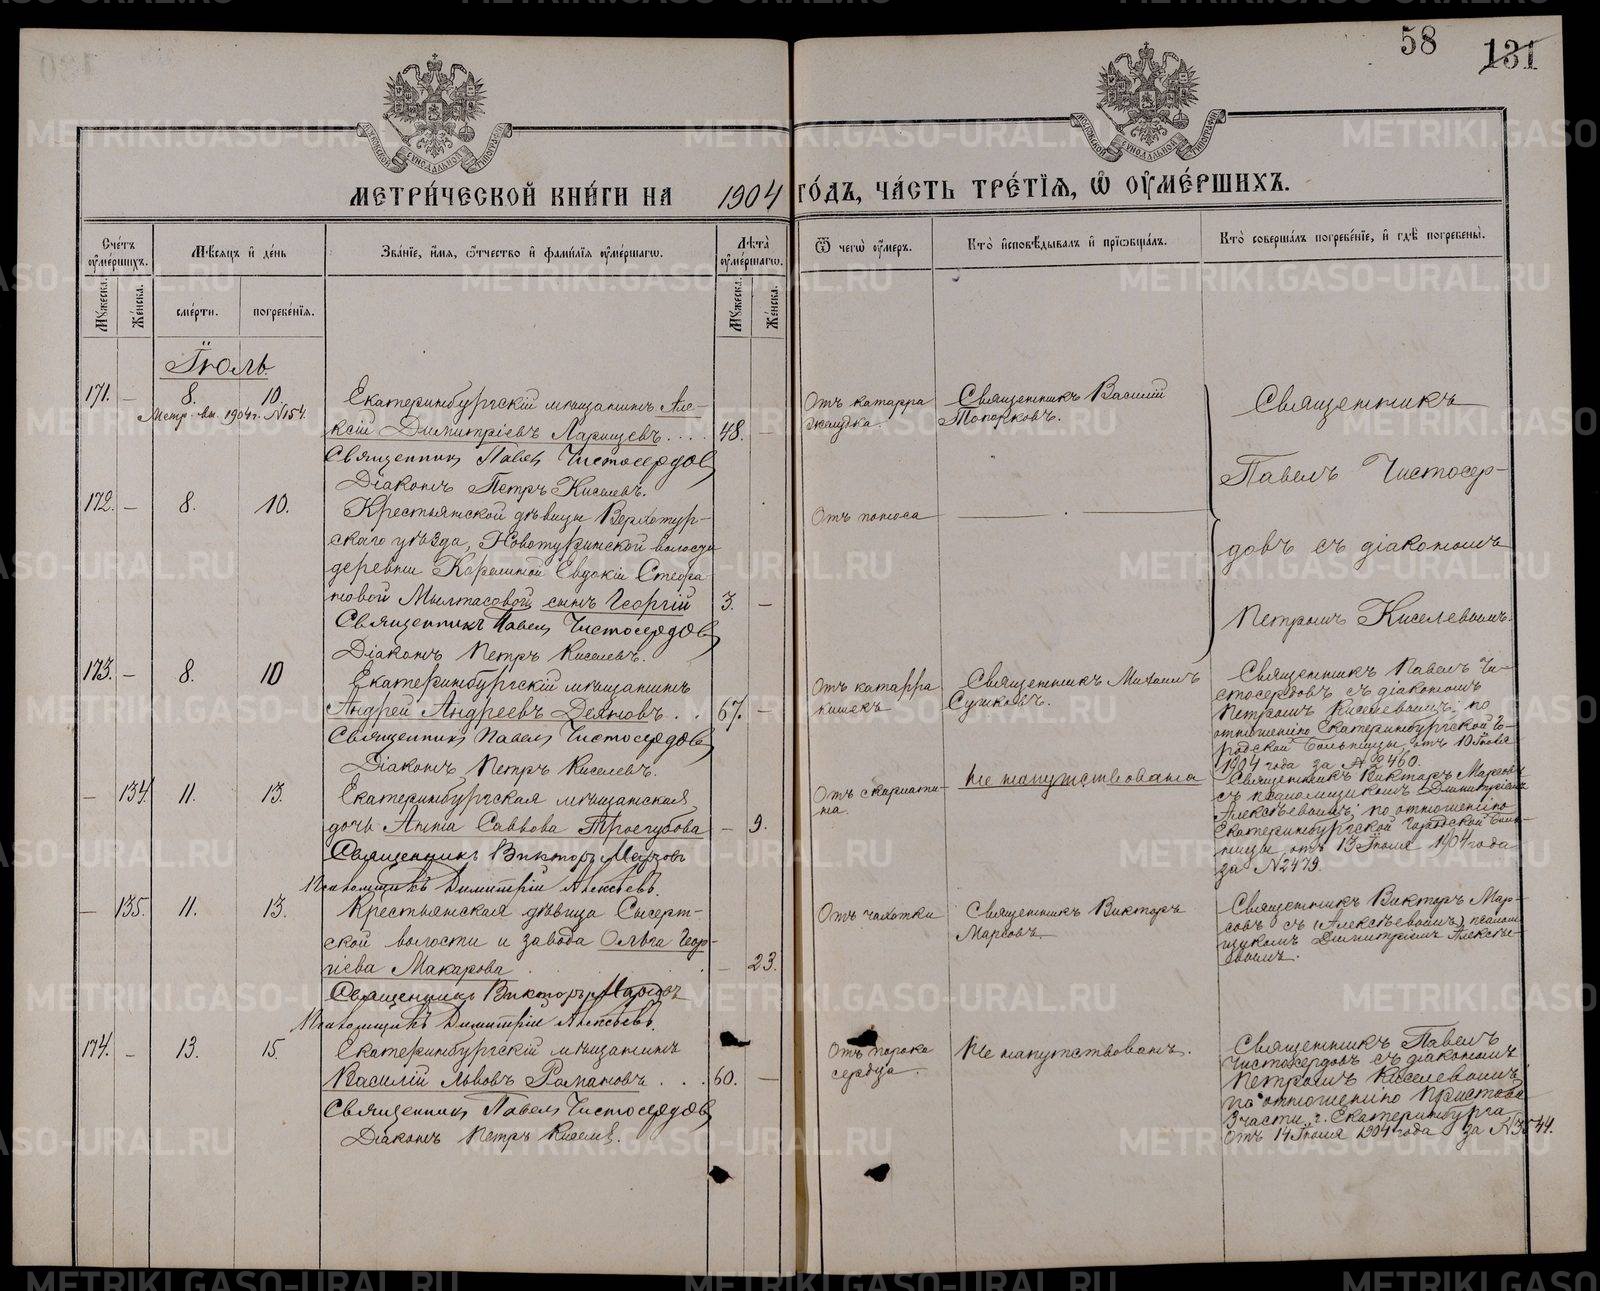 58
131
МЕТРИ́ЧЕСКОЙ КНИ́ГИ НА 1904 ГО́ДЪ, ЧА́СТЬ ТРЕ́ТЇЯ, Ѡ҆ ОУ҆МЕ́РШИХЪ.
Сче́тъ оу҆ме́ршихъ.
Мꙋ́жеска.
Же́нска.
Мѣ́сяцъ и҆ де́нь
сме́рти.
погребе́нїя.
Зва́нїе, и҆́мя, ѻ҆́тчество и҆ фами́лїя оу҆ме́ршагѡ.
Лѣ́та оу҆ме́ршагѡ.
Мꙋ́жеска.
Же́нска.
Ѿ чегѡ̀ оу҆́меръ.
Кто̀ и҆сповѣ́дывалъ и҆ прїѡбща́лъ.
Кто̀ соверша́лъ погребе́нїе, и҆ гдѣ̀ погребены̀.
Іюль.
171. — 8. 10.
Метр. вы. 1904 г. №154.
Екатеринбургскій мѣщанинъ Але-
ксій Димитріевъ Ларищевъ . . . . 48. —
Священникъ Павелъ Чистосердовъ
Діаконъ Петръ Киселевъ.
Отъ катарра
желудка.
Священникъ Василій
Топорковъ.
Священникъ
Павелъ Чистосер-
довъ съ діакономъ
Петромъ Киселевымъ.
172. — 8. 10.
Крестьянской дѣвицы Верхотур-
скаго уѣзда, Новотуринской волости
деревни Корелиной Евдокіи Стефа
новой Мылтасовой сынъ Георгій 3. —
Священникъ Павелъ Чистосердовъ
Діаконъ Петръ Киселевъ.
Отъ поноса
173. — 8. 10
Екатеринбургскій мѣщанинъ
Андрей Андреевъ Деяновъ . . 67. —
Священникъ Павелъ Чистосердовъ
Діаконъ Петръ Киселевъ.
Отъ катарра
кишекъ
Священникъ Михаилъ
Сушковъ.
Священникъ Павелъ Чи-
стосердовъ съ діакономъ
Петромъ Киселевымъ; по
отношенію Екатеринбургской Го-
родской больницы отъ 10 Іюля
1904 года за №2460.
— 134. 11. 13.
Екатеринбургская мѣщанская
дочь Анна Саввова Трегубова — 9.
Священникъ Викторъ Марсовъ
Псаломщикъ Димитрій Алексѣевъ.
Отъ скарлати-
на.
Не напутствована
Священникъ Викторъ Марсовъ
съ псаломщикомъ Димитріемъ
Алексѣевымъ; по отношенію
Екатеринбургской городской боль-
ницы отъ 13 Іюля 1904 года
за №2479.
— 135. 11. 13.
Крестьянская дѣвица Сысерт-
ской волости и завода Ольга Геор-
гіева Макарова — 23.
Священникъ Викторъ Марсовъ
Псаломщикъ Димитрій Алексѣевъ.
Отъ чахотки
Священникъ Викторъ
Марсовъ.
Священникъ Викторъ Мар-
совъ съ (Алексѣевымъ) псалом-
щикомъ Димитріемъ Алексѣе-
вымъ.
174. — 13. 15.
Екатеринбургскій мѣщанинъ
Василій Львовъ Романовъ . . . 60. —
Священникъ Павелъ Чистосердовъ
Діаконъ Петръ Киселевъ.
Отъ порока
сердца.
Не напутствованъ.
Священникъ Павелъ
Чистосердовъ съ діакономъ
Петромъ Киселевымъ
по отношенію Пристава
3 части, г. Екатеринбурга
отъ 14 Іюля 1904 года за №3544.
METRIKI.GASO-URAL.RU